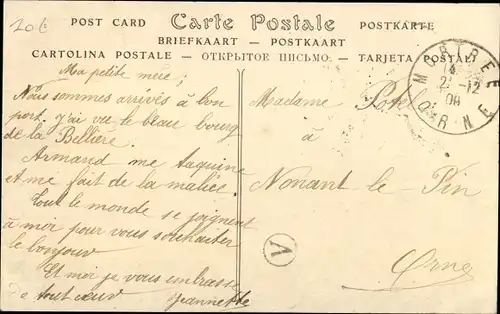 20 f
POST CARD Carte Postale POSTKARTE
BRIEFKAART - POSTKAART
CARTOLINA POSTALE - ОТКРЫТОЕ ПИСЬМО - TARJETA POSTAL
MORTRÉE
14
2-12
09
ORNE
Ma petite mère,
Nous sommes arrivés à bon
port. J'ai vu le beau bourg
de la Bellière.
Armand me taquine
et me fait de la malice.
Tout le monde se joignent
à moi pour vous souhaiter
le bonjour
Et moi je vous embrasse
de tout cœur Jeannette
Madame Potel
à
Nonant-le-Pin
V
Orne